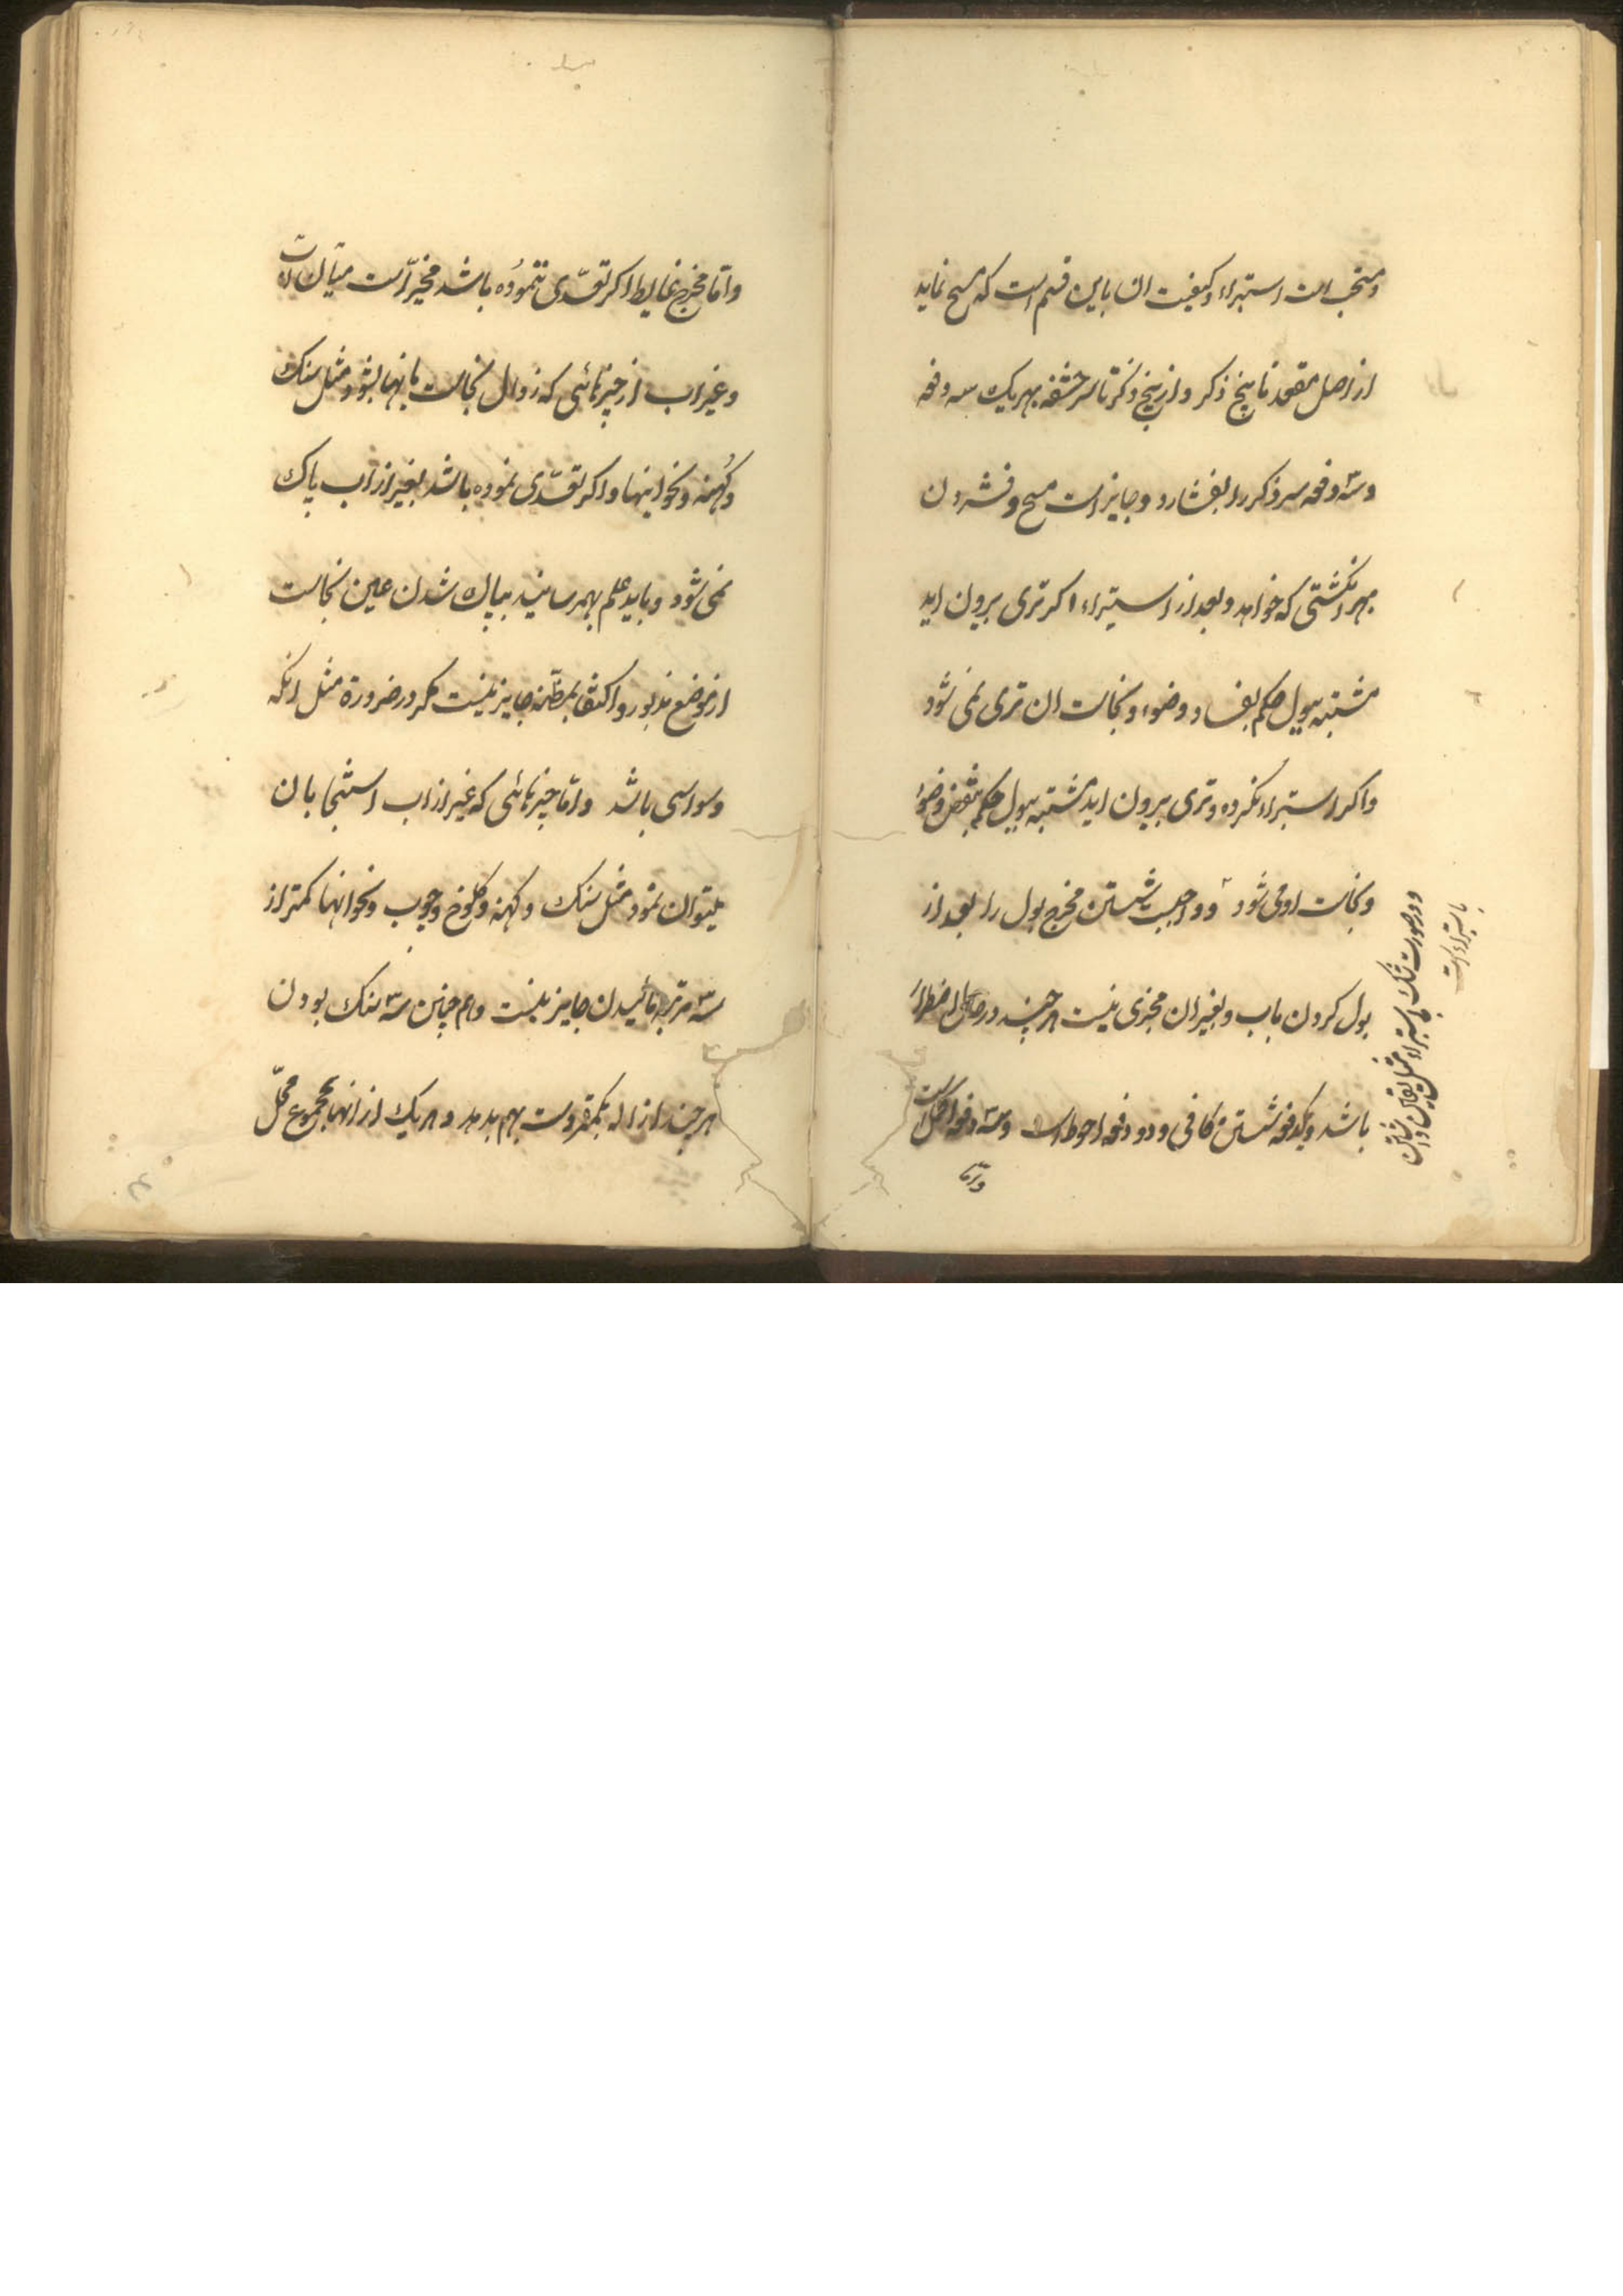 ومستحب است استبراء وکیفیت ان باین قسم است که مسح نماید
از اصل مقعد تا بیخ ذکر و از بیخ ذکر تا سر حشفه بهر یک سه دفعه
وسه دفعه سر ذکر را بفشارد وجایز است مسح وفشردن
بهر انکشتی که خواهد وبعد از استبراء اکر تری بیرون اید
مشتبه ببول حکم بفساد وضوء ونجاست ان تری نمی شود
واکر استبراء نکرده وتری بیرون اید مشتبه ببول حکم بنقض وضوء
ونجاست او می شود و واجبست شستن مخرج بول را بعد از
بول کردن باب وبغیر ان مجزی نیست هر چند در حال اضطرار
باشد ویکدفعه شستن کافی و دو دفعه احوط است وسه دفعه اکمل است
واما
ودر صورت شک باستبراء
باستبراء است
واما مخرج غایط اکر تعدی ننموده باشد مخیر است میان اب
وغیر اب از چیزهائی که زوال نجاست بانها بشود مثل سنک
وکهنه ونحو اینها واکر تعدی نموده باشد بغیر از اب پاک
نمی شود وباید علم بهمرسانید بپاک شدن عین نجاست
از موضع مذبور واکتفا بمظنه جایز نیست مکر در ضرورة مثل انکه
وسواسی باشد واما چیزهائی که غیر از اب استنجا بان
میتوان نمود مثل سنک وکهنه وکلوخ وچوب ونحو انها کمتر از
سه مرتبه مالیدن جایز نیست وهم چنین سه سنک بودن
هر چند ازاله بکمتر دست بهم بدهد وهر یک از انها بمجموع محل